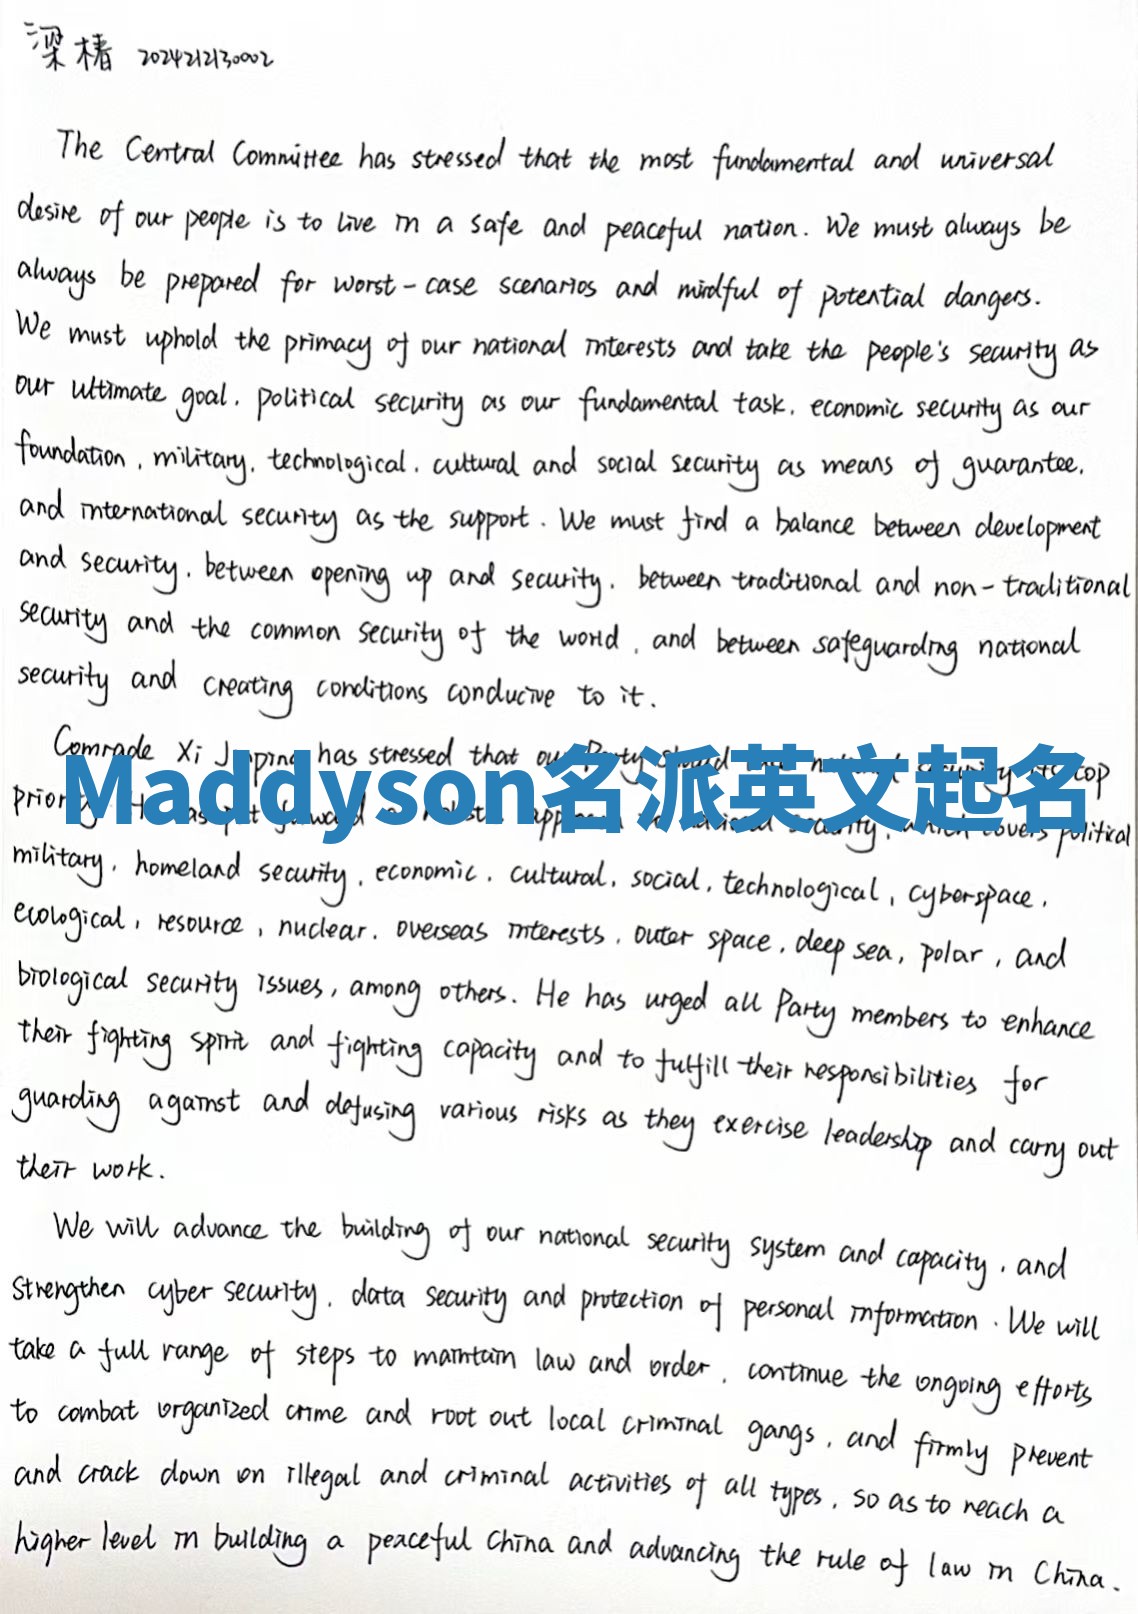 梁椿 2024212130002
The Central Committee has stressed that the most fundamental and universal
desire of our people is to live in a safe and peaceful nation. We must always be
always be prepared for worst-case scenarios and mindful of potential dangers.
We must uphold the primacy of our national interests and take the people's security as
our ultimate goal, political security as our fundamental task, economic security as our
foundation, military, technological, cultural and social security as means of guarantee,
and international security as the support. We must find a balance between development
and security, between opening up and security, between traditional and non-traditional
security and the common security of the world, and between safeguarding national
security and creating conditions conducive to it.
Comrade Xi Jinping has stressed that our Party
Maddyson名派英文起名
political
military, homeland security, economic, cultural, social, technological, cyberspace,
ecological, resource, nuclear, overseas interests, outer space, deep sea, polar, and
biological security issues, among others. He has urged all Party members to enhance
their fighting spirit and fighting capacity and to fulfill their responsibilities for
guarding against and defusing various risks as they exercise leadership and carry out
their work.
We will advance the building of our national security system and capacity, and
strengthen cyber security, data security and protection of personal information. We will
take a full range of steps to maintain law and order, continue the ongoing efforts
to combat organized crime and root out local criminal gangs, and firmly prevent
and crack down on illegal and criminal activities of all types, so as to reach a
higher level in building a peaceful China and advancing the rule of law in China.